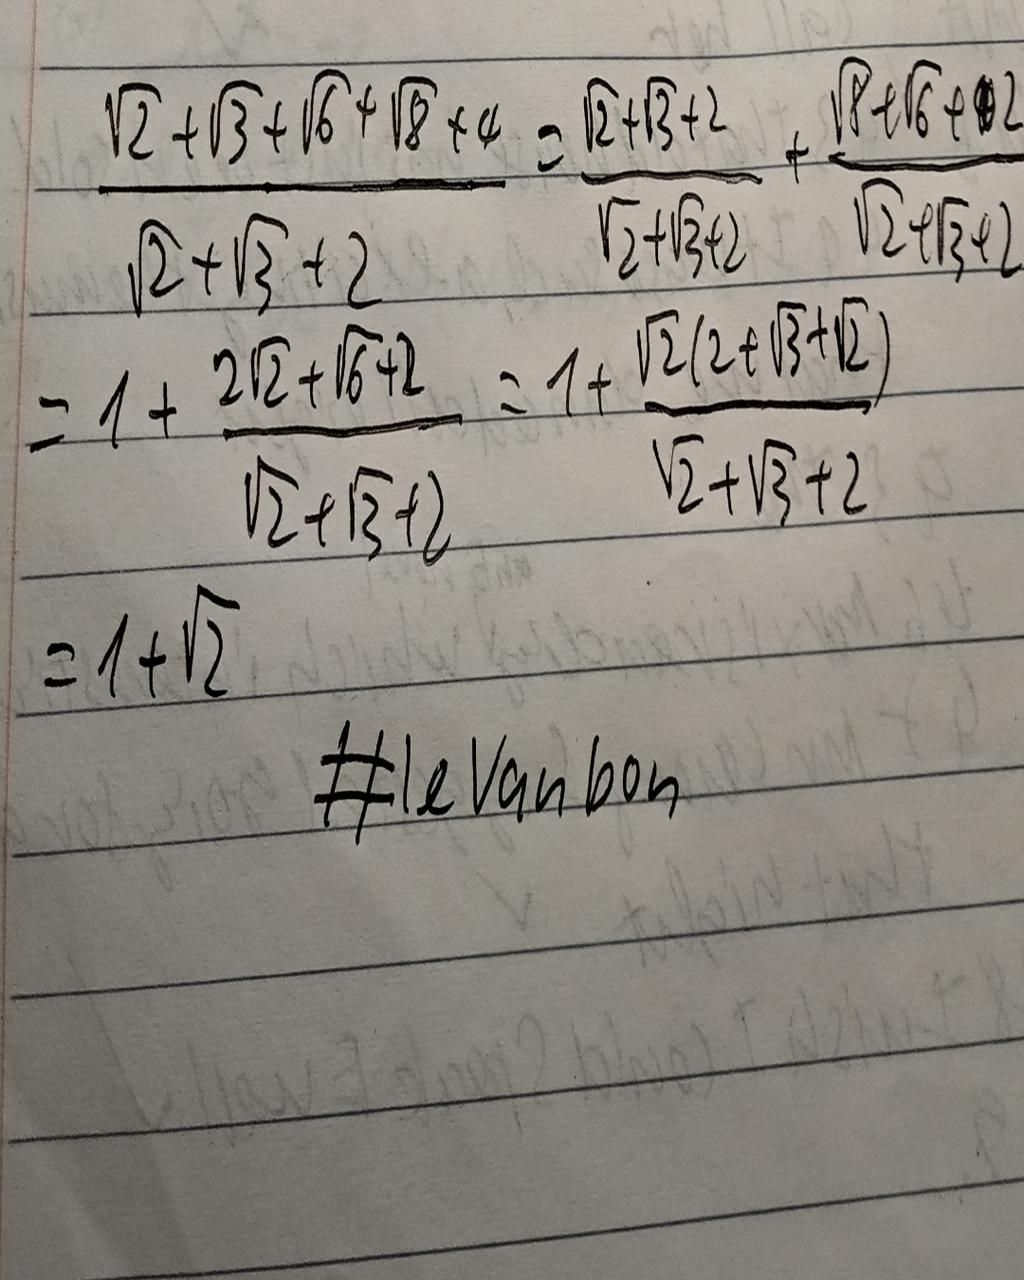 (√2 + √3 + √6 + √8 + 4)/(√2 + √3 + 2) = (√2 + √3 + 2)/(√2 + √3 + 2) + (√8 + √6 + 2)/(√2 + √3 + 2)
= 1 + (2√2 + √6 + 2)/(√2 + √3 + 2) = 1 + (√2(2 + √3 + √2))/(√2 + √3 + 2)
= 1 + √2
#levanbon